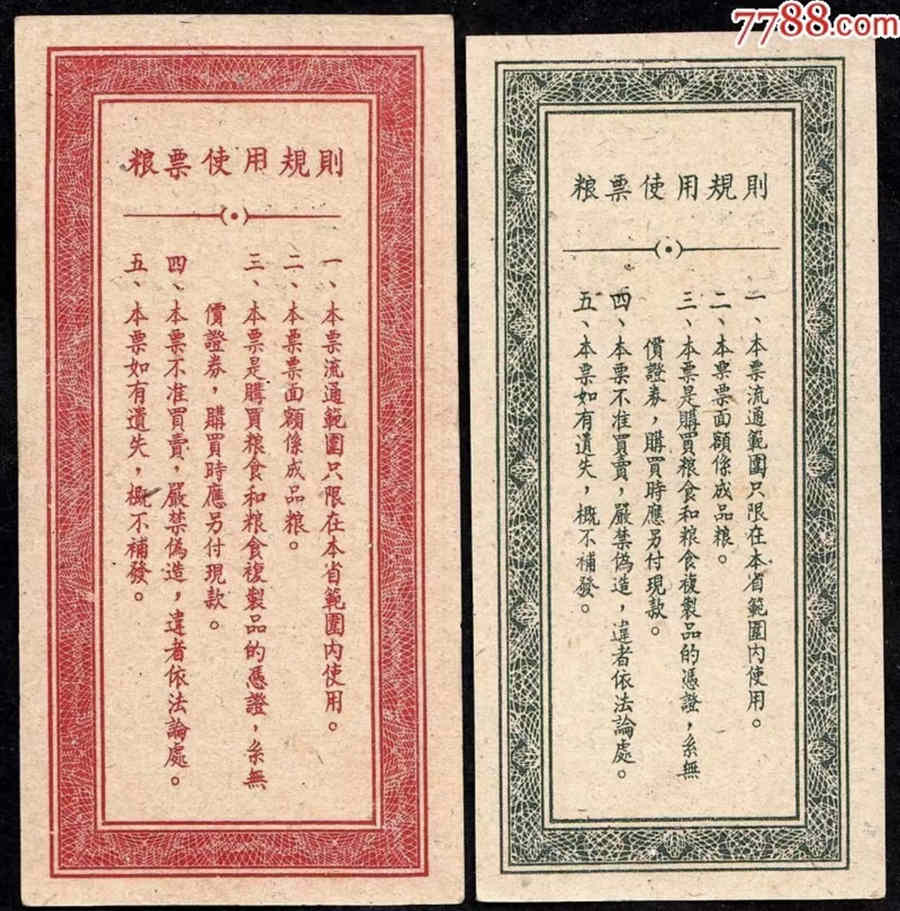 7788.com
粮票使用規則
一、本票流通範圍只限在本省範圍內使用。
二、本票票面額係成品粮。
三、本票是購買粮食和粮食複製品的憑證，系無
價證券，購買時應另付現款。
四、本票不准買賣，嚴禁偽造，違者依法論處。
五、本票如有遺失，概不補發。
粮票使用規則
一、本票流通範圍只限在本省範圍內使用。
二、本票票面額係成品粮。
三、本票是購買粮食和粮食複製品的憑證，系無
價證券，購買時應另付現款。
四、本票不准買賣，嚴禁偽造，違者依法論處。
五、本票如有遺失，概不補發。